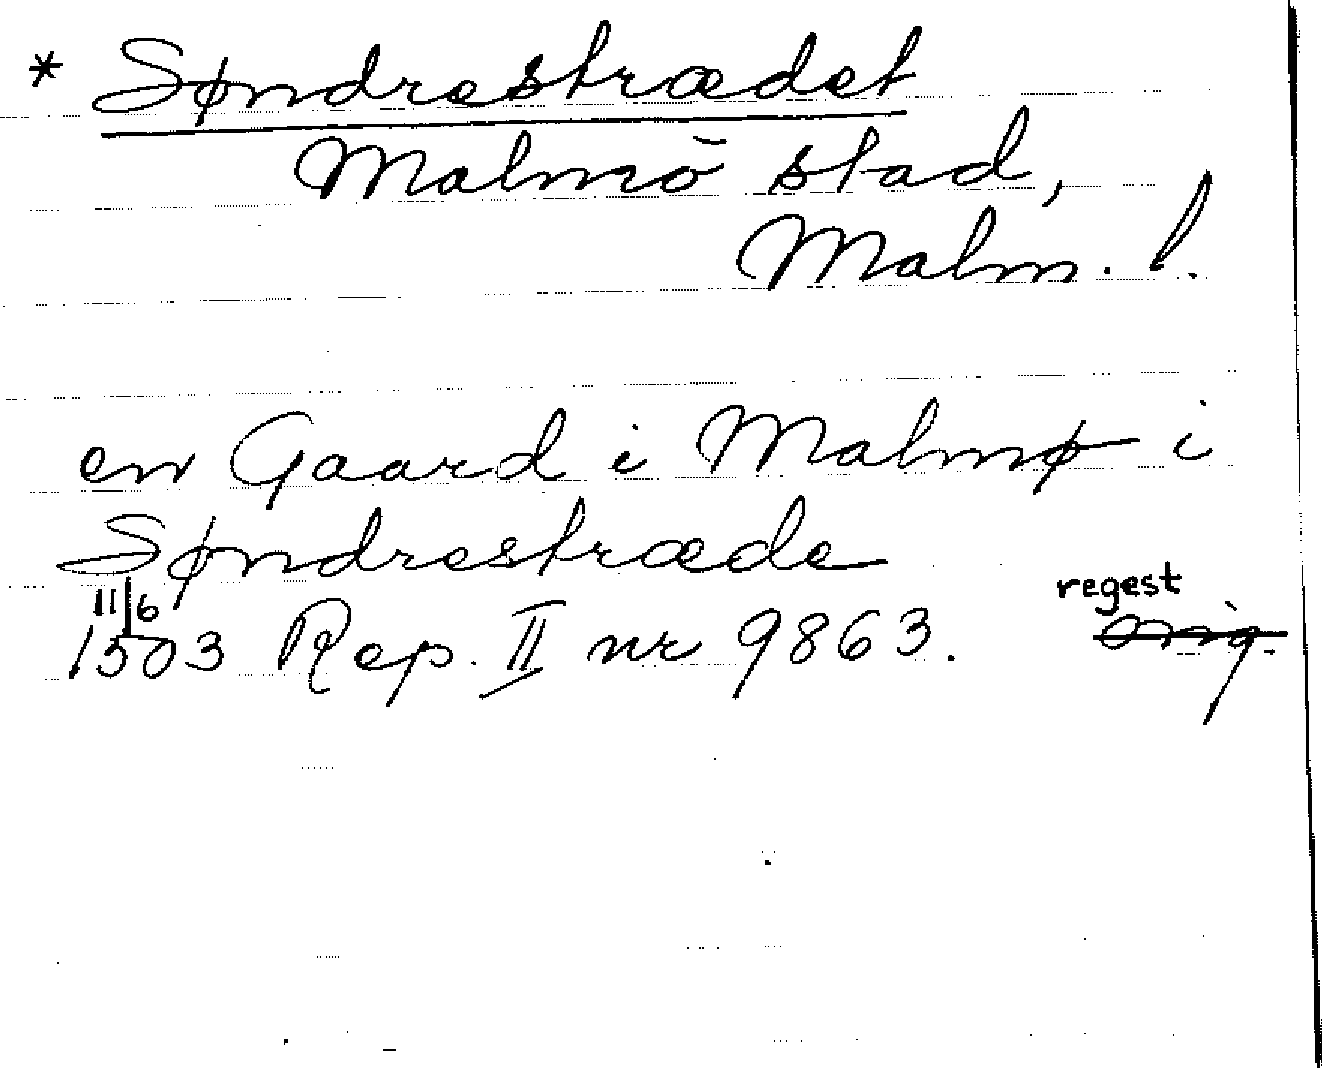 * Søndrestrædet
Malmö stad,
Malm. l.
en Gaard i Malmø i
Søndrestræde
11/6
regest
1503 Rep. II nr 9863. orig.